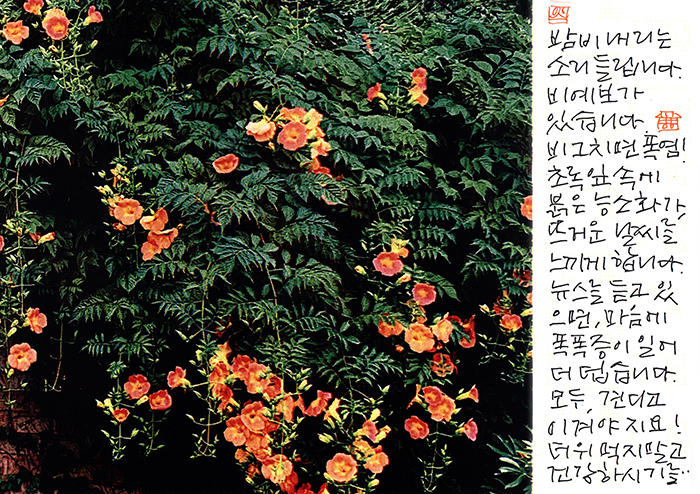 밤비 내리는
소리 들립니다.
비예보가
있습니다
비 그치면 폭염!
초록잎 속에
붉은 능소화가,
뜨거운 날씨를
느끼게 합니다.
뉴스를 듣고 있
으면, 마음에
폭폭증이 일어
더 덥습니다.
모두, 견디고
이겨야지요!
더위 먹지말고
건강하시기를..